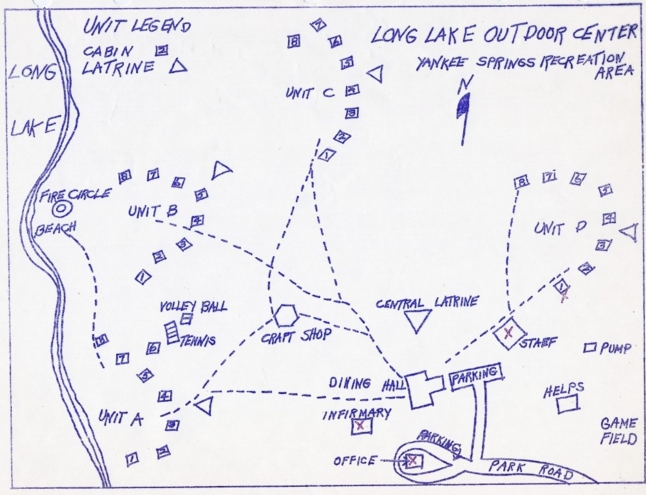 UNIT LEGEND
CABIN
LATRINE
LONG LAKE OUTDOOR CENTER
YANKEE SPRINGS RECREATION
AREA
N
LONG
LAKE
UNIT C
8
7
6
5
4
3
2
1
FIRE CIRCLE
BEACH
UNIT B
8
7
6
5
4
3
2
1
UNIT D
8
7
6
5
4
3
2
1
VOLLEY BALL
TENNIS
CRAFT SHOP
CENTRAL LATRINE
STAFF
PUMP
UNIT A
8
7
6
5
4
3
2
1
DINING HALL
PARKING
HELPS
INFIRMARY
GAME
FIELD
PARKING
OFFICE
PARK ROAD